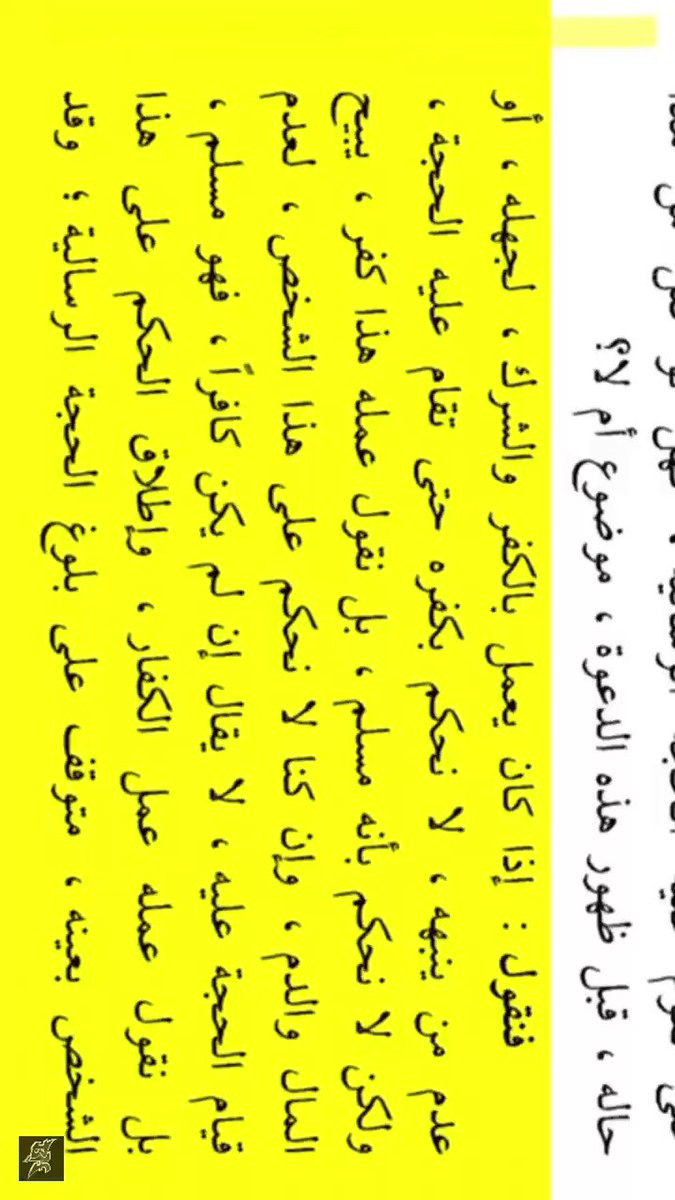 حاله ، قبل ظهور هذه الدعوة ، موضوع أم لا؟
فنقول : إذا كان يعمل بالكفر والشرك ، لجهله ، أو
عدم من ينبهه ، لا نحكم بكفره حتى تقام عليه الحجة ،
ولكن لا نحكم بأنه مسلم ، بل نقول عمله هذا كفر ، يبيح
المال والدم ، وإن كنا لا نحكم على هذا الشخص ، لعدم
قيام الحجة عليه ، لا يقال إن لم يكن كافراً ، فهو مسلم ،
بل نقول عمله عمل الكفار ، وإطلاق الحكم على هذا
الشخص بعينه ، متوقف على بلوغ الحجة الرسالية ؛ وقد